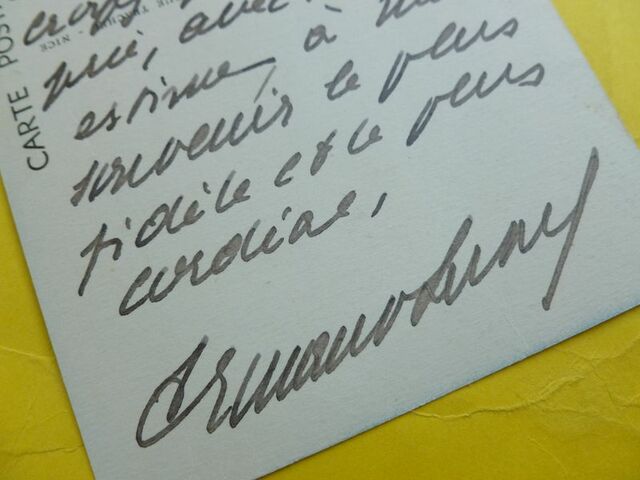 CARTE POST
NICE
avec
estime, à
souvenir le plus
fidèle et le plus
cordial,
Armand Lunel